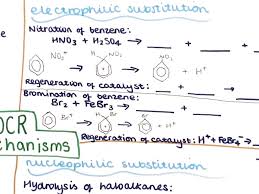 electrophilic substitution
Nitration of benzene:
HNO3 + H2SO4 → __ + __ + __
NO2+ NO2 + H+
Regeneration of catalyst: __ + __ → __
Bromination of benzene:
Br2 + FeBr3 → __ + __
Br+ Br + H+
Regeneration of catalyst: H+ + FeBr4- → __ + __
OCR
chanisms
nucleophilic substitution
Hydrolysis of haloalkanes: